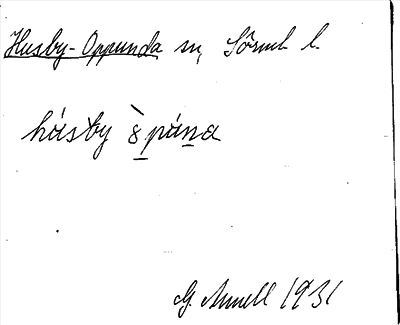 Husby-Oppunda sn, Sörml l.
hásby
G. Annell 1931